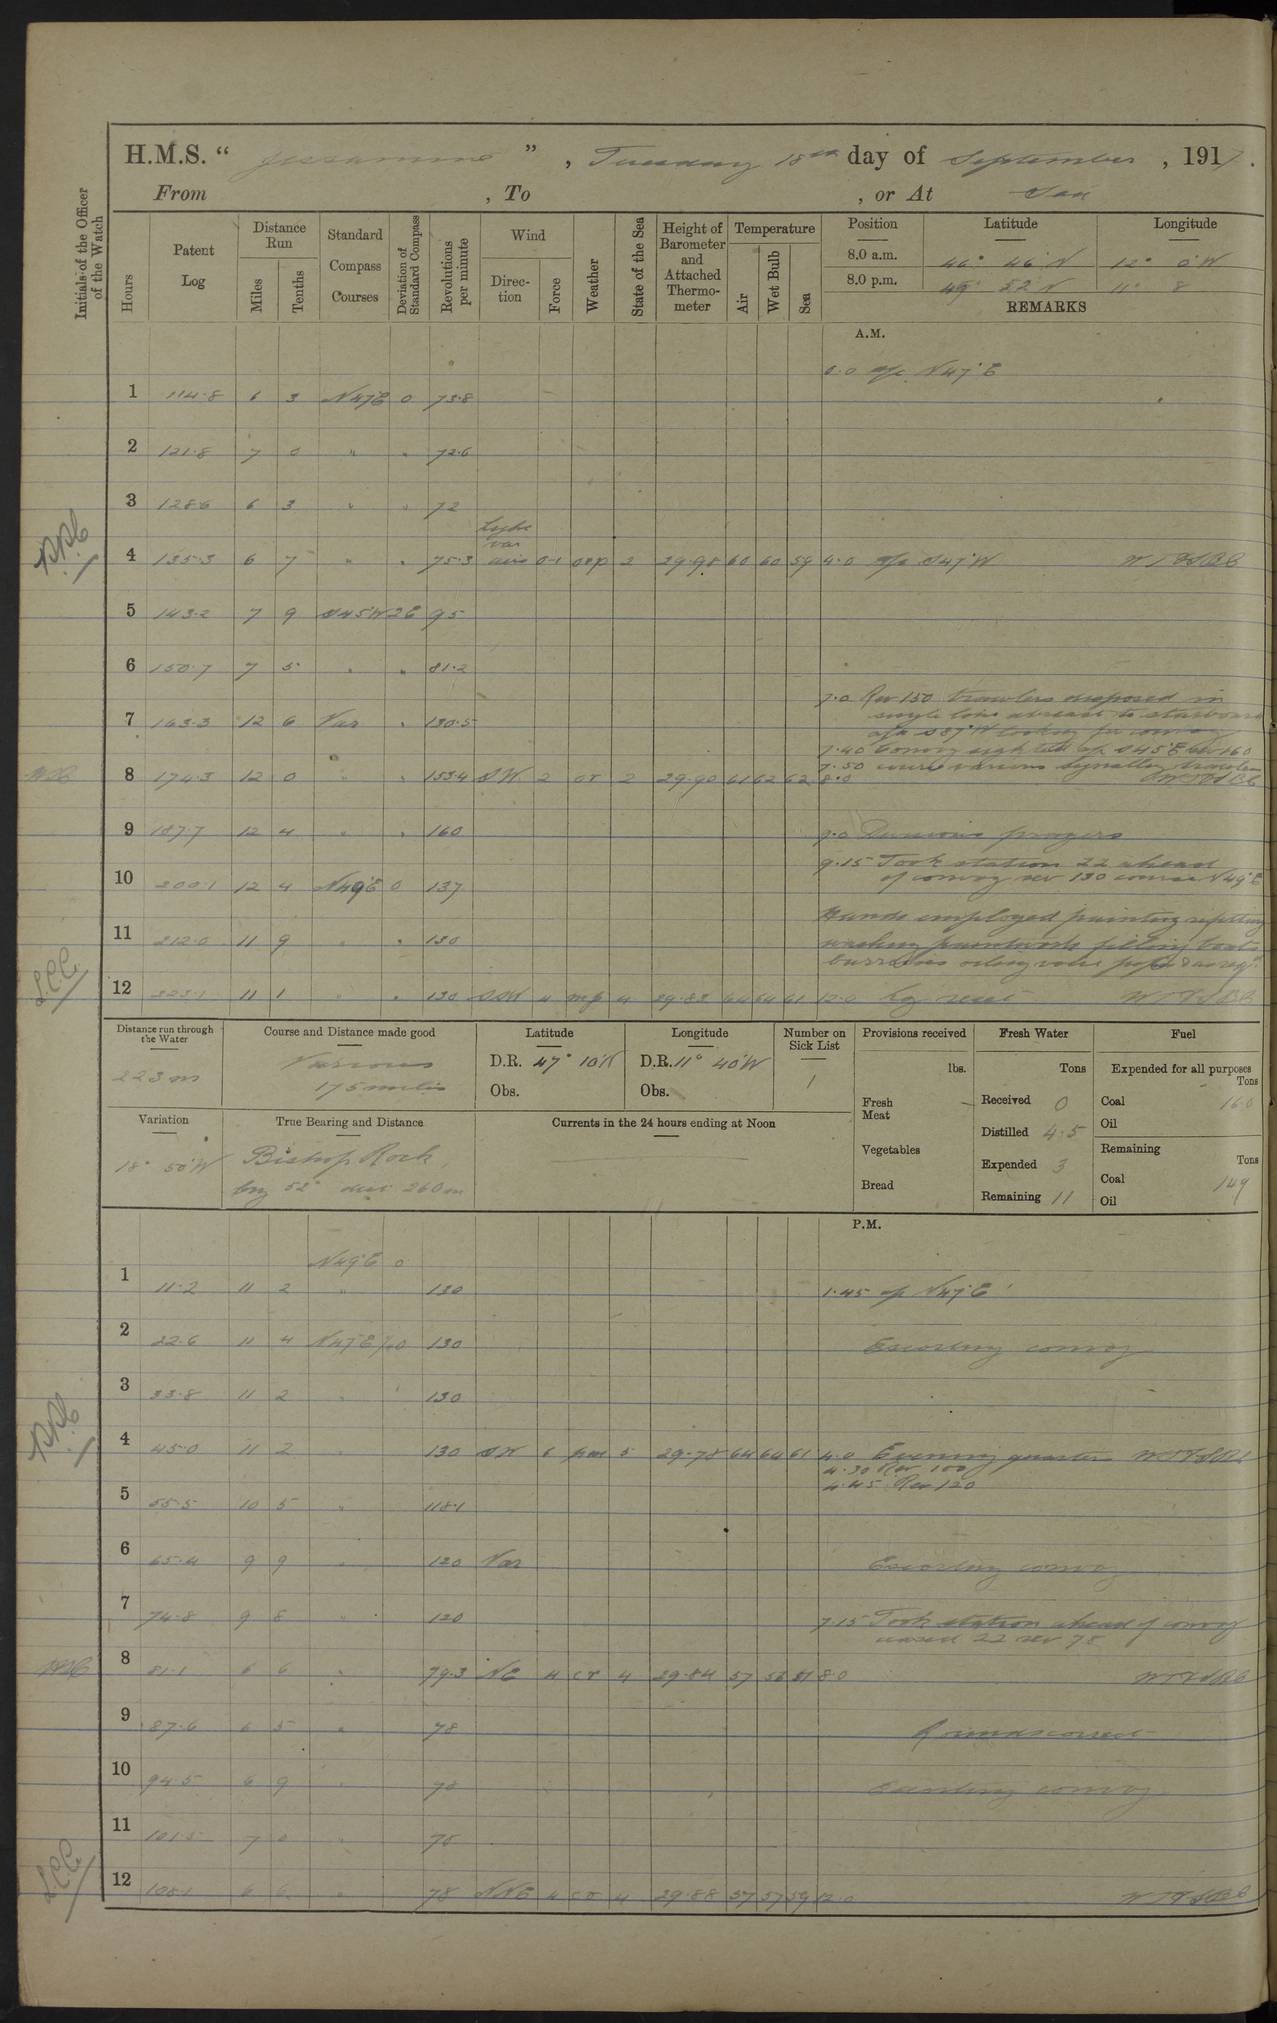 H.M.S. " Jessamine " , Tuesday 18th day of September , 1917.
From , To , or At Sea
Initials of the Officer of the Watch
Hours
Patent Log
Distance Run
Miles
Tenths
Standard Compass Courses
Deviation of Standard Compass
Revolutions per minute
Wind
Direction
Force
Weather
State of the Sea
Height of Barometer and Attached Thermometer
Temperature
Air
Wet Bulb
Sea
Position Latitude Longitude
8.0 a.m. 46° 46' N 12° 0' W
8.0 p.m. 52' N 11° 8
REMARKS
A.M.
0.0 a/c N47°E
1 114.8 6 3 N47°E 0 73.8
2 121.8 7 0 " " 72.6
3 128.6 6 3 " " 72
4 135.3 6 7 " " 75.3 Light var airs 0-1 orp 2 29.98 60 60 59 4.0 a/c S47°W
5 143.2 7 9 S45°W 2E 95
6 150.7 7 5 " " 81.2
7.0 Rev 150 trawlers disposed in
single line abreast to starboard
a/c S87°W looking for convoy
7 163.3 12 6 Var " 130.5
7.40 Convoy sighted a/c S45°E rev 160
7.50 course various signalling trawlers
8 174.3 12 0 " " 153.4 SW 2 or 2 29.90 61 62 62 8.0
9 187.7 12 4 " " 160 9.0 Divisions prayers
9.15 Took station 22 ahead
of convoy rev 130 course N49°E
10 200.1 12 4 N49°E 0 137
Hands employed painting refitting
washing paintwork filling boats
11 212.0 11 9 " " 130
12 223.1 11 1 " " 130 SSW 4 mp 4 29.83 64 64 61 12.0 Log reset
Distance run through the Water
223 m
Course and Distance made good
Various
175 miles
Latitude
D.R. 47° 10'N
Obs.
Longitude
D.R. 11° 40'W
Obs.
Number on Sick List
1
Provisions received
lbs.
Fresh Meat –
Vegetables
Bread
Fresh Water
Tons
Received 0
Distilled 4.5
Expended 3
Remaining 11
Fuel
Expended for all purposes
Tons
Coal 16.0
Oil
Remaining
Tons
Coal 149
Oil
Variation
18° 50'W
True Bearing and Distance
Bishop Rock
brg 52° dist 260 m
Currents in the 24 hours ending at Noon
P.M.
N49°E 0
1 11.2 11 2 " 130 1.45 a/c N47°E
2 22.6 11 4 N47°E 130 Escorting convoy
3 33.8 11 2 " 130
4 45.0 11 2 " 130 SW 6 5 29.78 64 64 61 4.0 Evening quarters
4.30 Rev 100
4.45 Rev 120
5 55.5 10 5 " 118.1
6 65.4 9 9 " 120 Var Escorting convoy
7 74.8 9 8 " 120 7.15 Took station ahead of convoy
22 rev 78
8 81.1 6 6 " 79.3 NE 4 cr 4 29.84 57 8.0
9 87.6 6 5 " 78 Rounds correct
10 94.5 6 9 " 78 Escorting convoy
11 101.5 7 0 " 78
12 108.1 6 6 " 78 NNE 4 cr 4 29.88 57 57 59 12.0